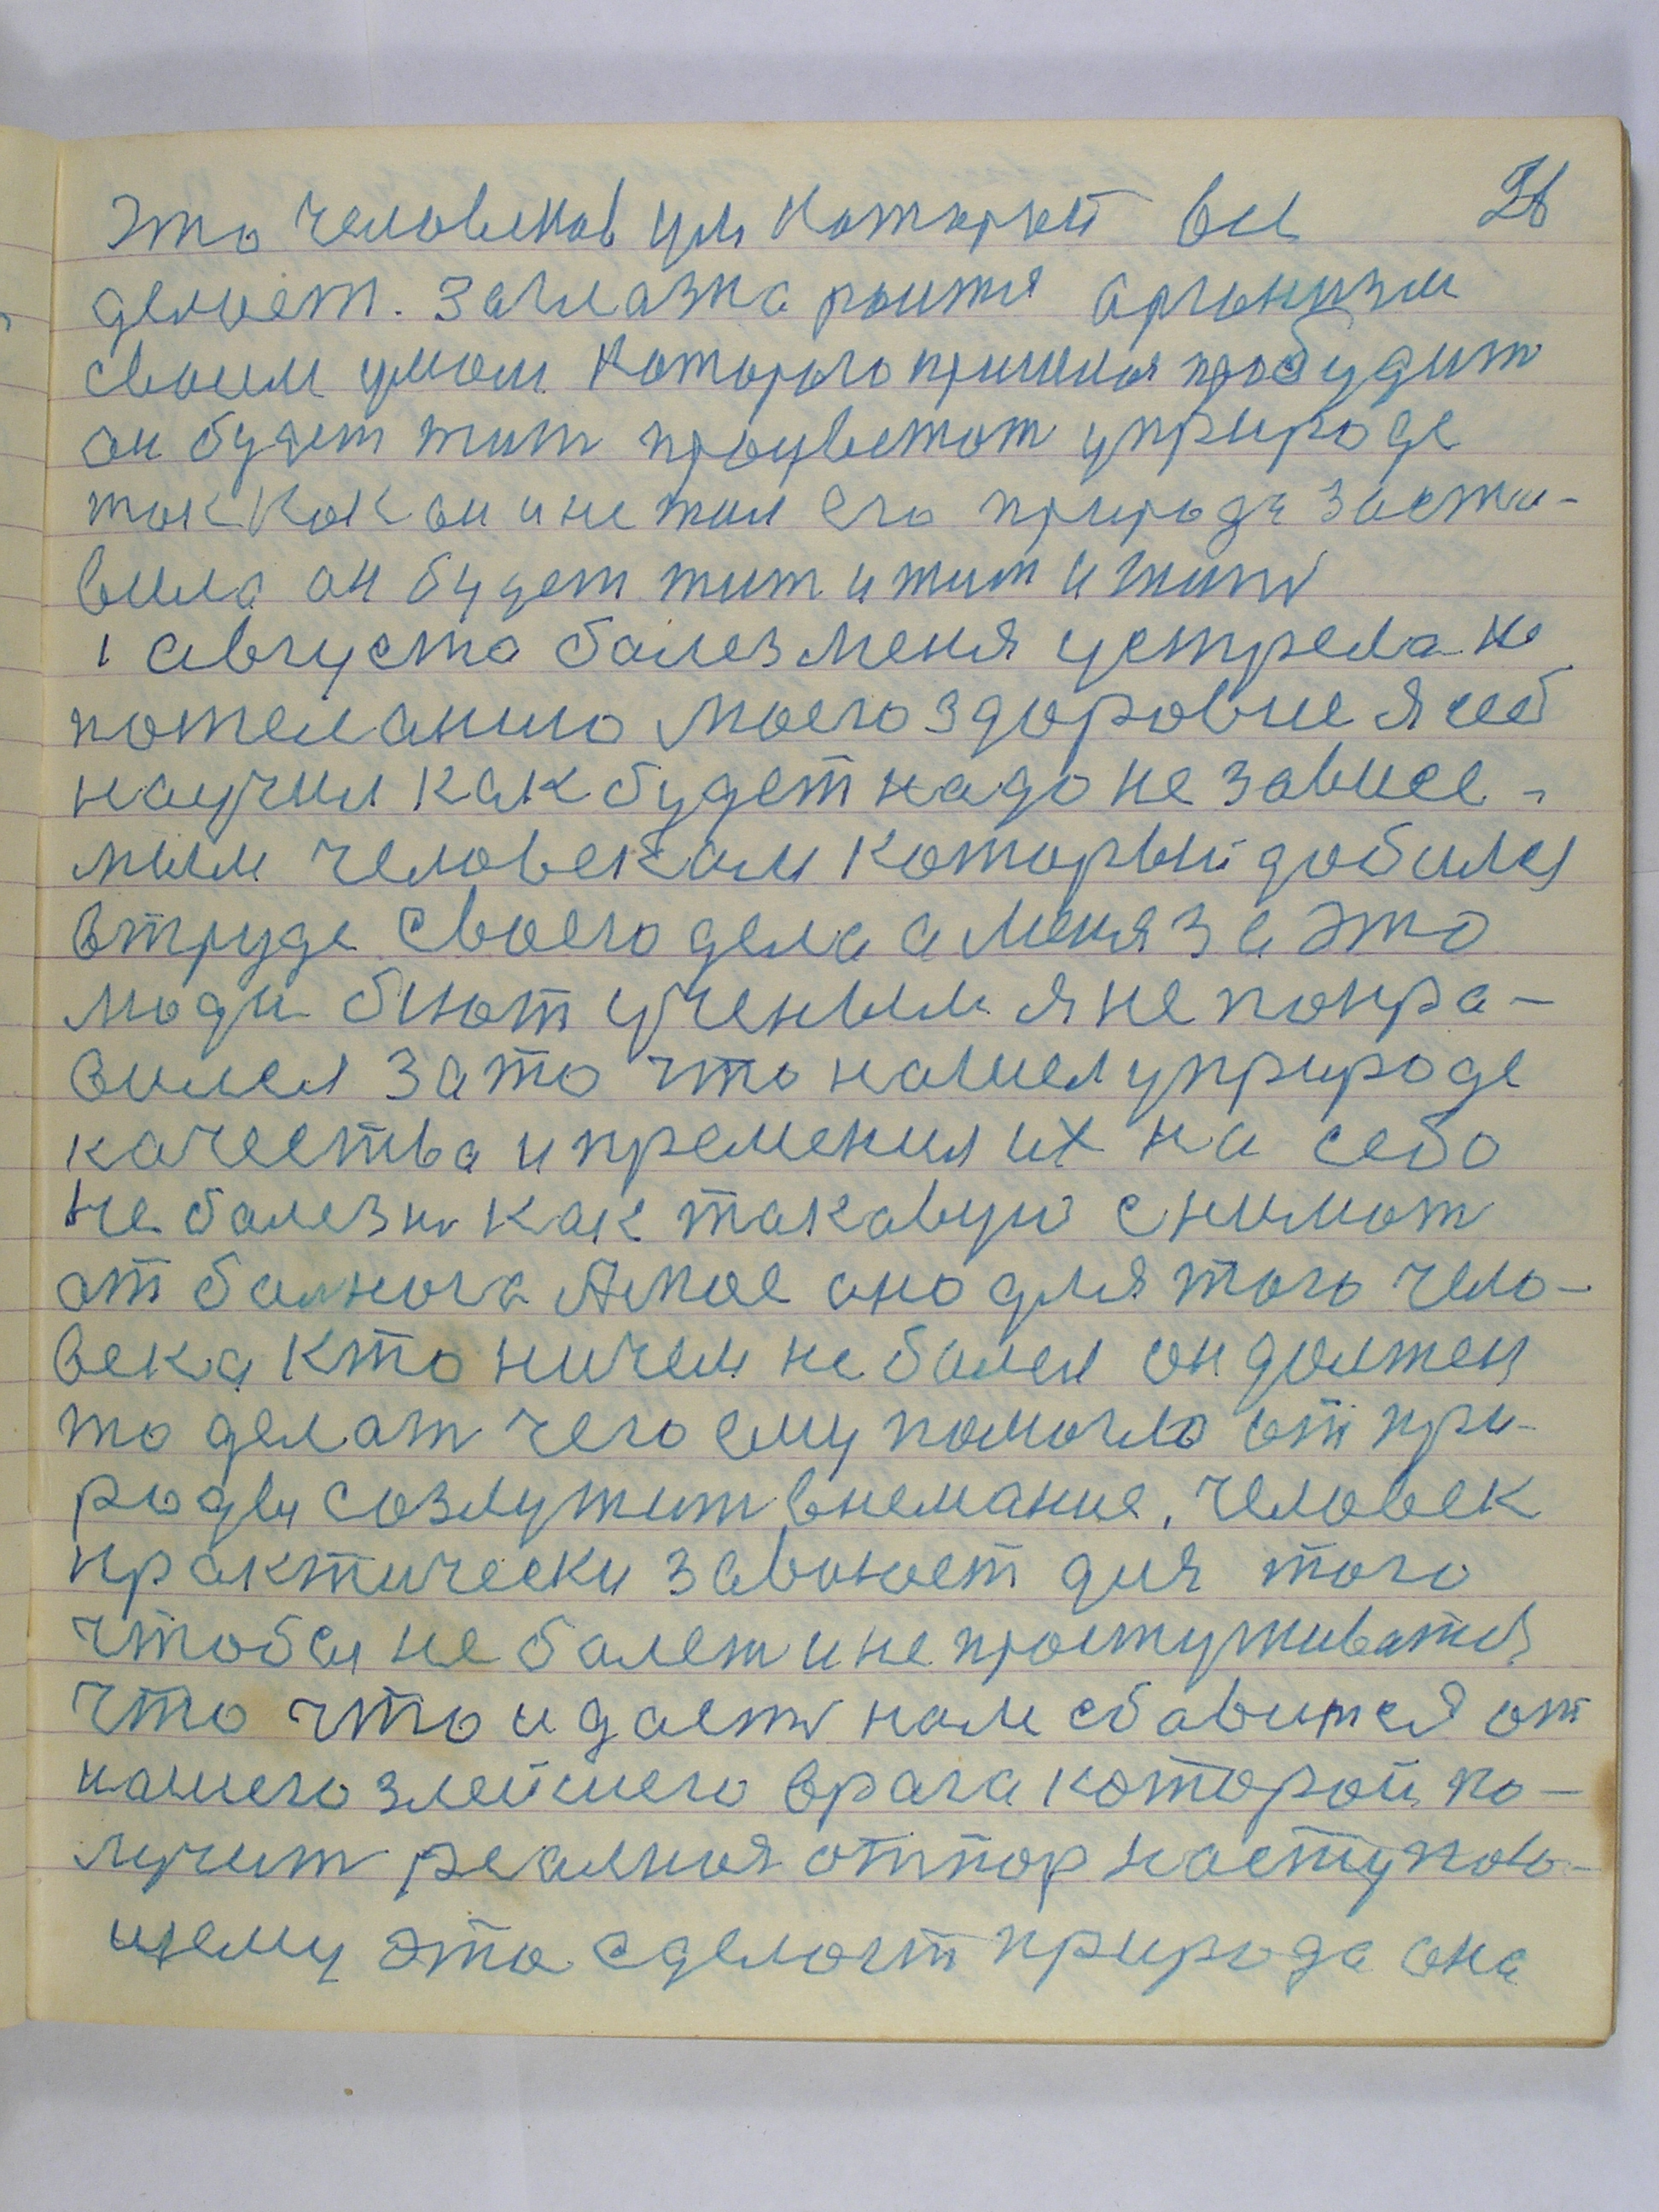 это человеков ум который вси
делает. Зачлазка роится арганизм
своим умом которого пришлоя пробудит
он будет жит процветат уприроде
так как он и не жил его природа заста-
вила он будет жит и жит и жит
1 августа болез меня устрела не
пожеланию моего здоровие я себ
научил как будет надо не зависе-
мым человекам который добился
втруде своего дела а меня за это
люди бют ученым я не понра-
вился зато что нашел уприроде
качества и пременил их на себо
не болезн как такавую снимат
от болнога Амое оно для того чело-
века кто ничем не болел он должен
то делат чего ему помогло от при-
роды созлужит внемание, человек
практически завоюет для того
чтобы не болет и не простуживатся
что что и дает нам сбавится от
нашего злейшего врага которой по-
лучит реалная отпор наступаю-
щему это сделает природа она